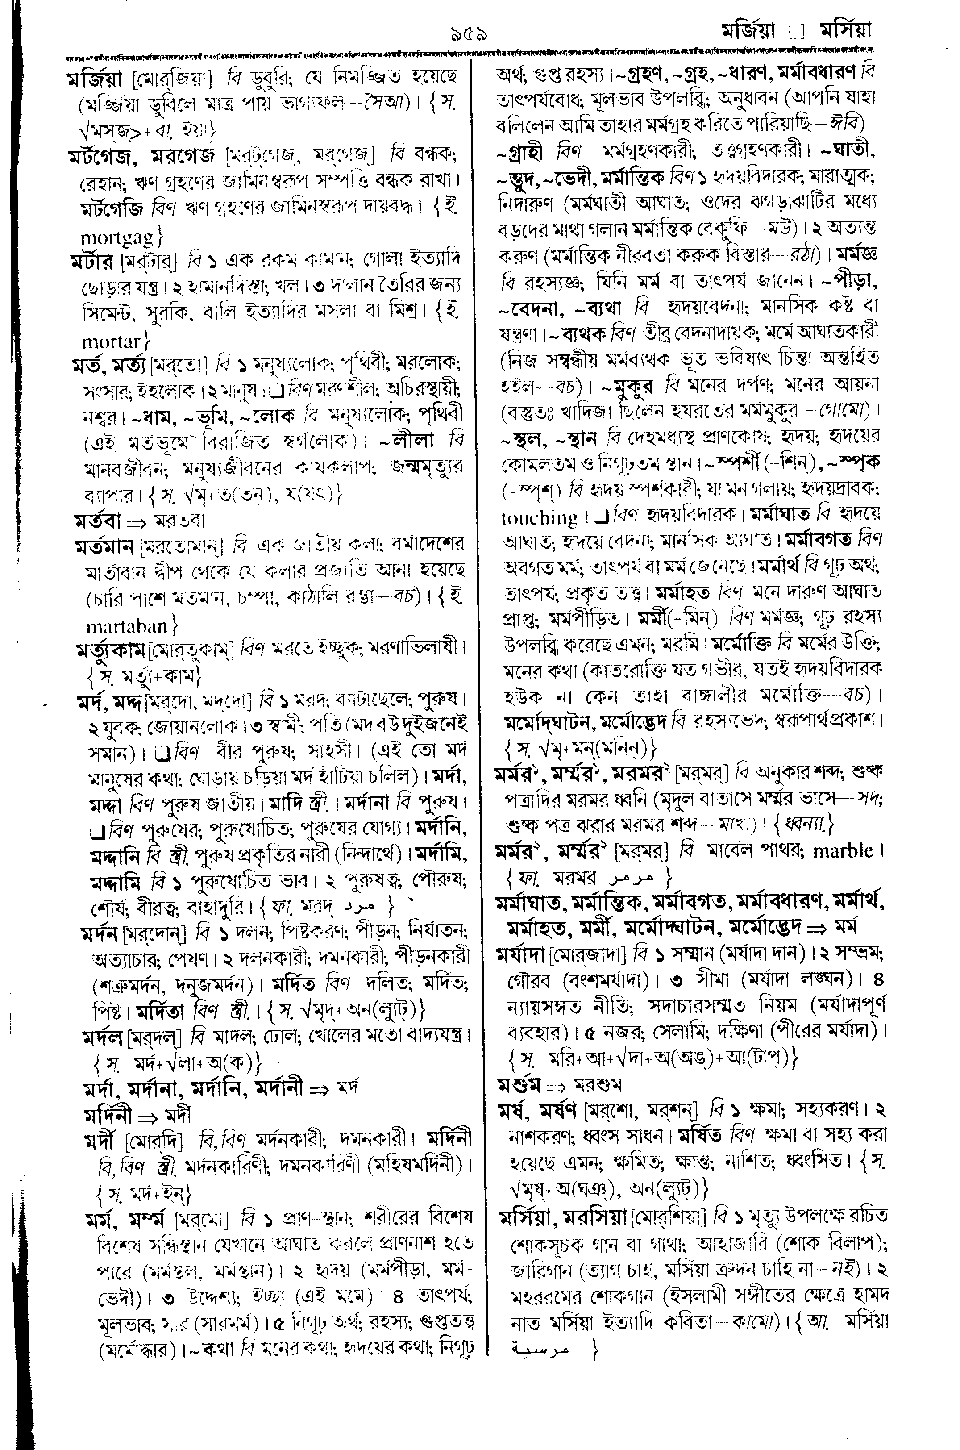 ৯৫৯
মর্জিয়া □ মর্সিয়া
মর্জিয়া [মোর্‌জিয়া] বি ডুবুরি; যে নিমজ্জিত হয়েছে
(মজ্জিয়া ডুবিলে মাত্র পায় ভাগ্যফল—সৈআ)। {স.
√মসজ্‌>+বা. ইয়া}
মর্টগেজ, মরগেজ [মর্‌ট্‌গেজ, মর্‌গেজ] বি বন্ধক;
রেহান; ঋণ গ্রহণের জামিনস্বরূপ সম্পত্তি বন্ধক রাখা।
মর্টগেজি বিণ ঋণ গ্রহণের জামিনস্বরূপ দায়বদ্ধ। {ই.
mortgag}
মর্টার [মর্‌টার্‌] বি ১ এক রকম কামান; গোলা ইত্যাদি
ছোড়ার যন্ত্র। ২ হামানদিস্তা; খল। ৩ দালান তৈরির জন্য
সিমেন্ট, সুরকি, বালি ইত্যাদির মসলা বা মিশ্র। {ই.
mortar}
মর্ত, মর্ত্য [মর্‌তো] বি ১ মনুষ্যলোক; পৃথিবী; মরলোক;
সংসার; ইহলোক। ২ মানুষ। □ বিণ মরণশীল; অচিরস্থায়ী;
নশ্বর। ~ধাম, ~ভূমি, ~লোক বি মনুষ্যলোক; পৃথিবী
(এই মর্তভূমে বিরাজিত স্বর্গলোক)। ~লীলা বি
মানবজীবন; মনুষ্যজীবনের কার্যকলাপ; জন্মমৃত্যুর
ব্যাপার। {স. √মৃ+ত(তন্‌), য(যৎ)}
মর্তবা ⇒ মরতবা
মর্তমান [মর্‌তোমান্‌] বি এক জাতীয় কলা; বর্মাদেশের
মার্তাবান দ্বীপ থেকে যে কলার প্রজাতি আনা হয়েছে
(চারি পাশে মর্তমান, চম্পা, কাঠালি রম্ভা—বচ)। {ই.
martaban}
মর্ত্যুকাম [মোর্‌তুকাম্‌] বিণ মরতে ইচ্ছুক; মরণাভিলাষী।
{স. মর্ত্যু+কাম}
মর্দ, মদ্দ [মর্‌দো, মদ্‌দো] বি ১ মরদ; বেটাছেলে; পুরুষ।
২ যুবক; জোয়ানলোক। ৩ স্বামী; পতি (মর্দ বউ দুইজনেই
সমান)। □ বিণ বীর পুরুষ; সাহসী। (এই তো মর্দ
মানুষের কথা; ঘোড়ায় চড়িয়া মর্দ হাঁটিয়া চলিল)। মর্দা,
মদ্দা বিণ পুরুষ জাতীয়। মাদি স্ত্রী.। মর্দানা বি পুরুষ।
□ বিণ পুরুষের; পুরুষোচিত; পুরুষের যোগ্য। মর্দানি,
মদ্দানি বি স্ত্রী. পুরুষ প্রকৃতির নারী (নিন্দার্থে)। মর্দামি,
মদ্দামি বি ১ পুরুষোচিত ভাব। ২ পুরুষত্ব; পৌরুষ;
শৌর্য; বীরত্ব; বাহাদুরি। {ফা. মরদ্‌ مرد}
মর্দন [মর্‌দোন্‌] বি ১ দলন; পিষ্টকরণ; পীড়ন; নির্যাতন;
অত্যাচার; পেষণ। ২ দলনকারী; দমনকারী; পীড়নকারী
(শত্রুমর্দন, দনুজমর্দন)। মর্দিত বিণ দলিত; মর্দিত;
পিষ্ট। মর্দিতা বিণ স্ত্রী.। {স. √মৃদ্‌+অন(ল্যুট্‌)}
মর্দল [মর্‌দল্‌] বি মাদল; ঢোল; খোলের মতো বাদ্যযন্ত্র।
{স. মর্দ+√লা+অ(ক)}
মর্দা, মর্দানা, মর্দানি, মর্দানী ⇒ মর্দ
মর্দিনী ⇒ মর্দী
মর্দী [মোর্‌দি] বি, বিণ মর্দনকারী; দমনকারী। মর্দিনী
বি, বিণ স্ত্রী. মর্দনকারিণী; দমনকারিণী (মহিষমর্দিনী)।
{স. মর্দ+ইন্‌}
মর্ম, মর্ম্ম [মর্‌মো] বি ১ প্রাণ-স্থান; শরীরের বিশেষ
বিশেষ সন্ধিস্থান যেখানে আঘাত করলে প্রাণনাশ হতে
পারে (মর্মস্থল, মর্মস্থান)। ২ হৃদয় (মর্মপীড়া, মর্ম-
ভেদী)। ৩ উদ্দেশ্য; ইচ্ছা (এই মর্মে) ৪ তাৎপর্য;
মূলভাব; সার (সারমর্ম)। ৫ নিগূঢ় অর্থ; রহস্য; গুপ্ততত্ত্ব
(মর্মোদ্ধার)। ~কথা বি মনের কথা; হৃদয়ের কথা; নিগূঢ়
অর্থ; গুপ্ত রহস্য। ~গ্রহণ, ~গ্রহ, ~ধারণ, মর্মাবধারণ বি
তাৎপর্যবোধ; মূলভাব উপলব্ধি; অনুধাবন (আপনি যাহা
বলিলেন আমি তাহার মর্মগ্রহ করিতে পারিয়াছি—ঈবি)
~গ্রাহী বিণ মর্মগ্রহণকারী; তত্ত্বগ্রহণকারী। ~ঘাতী,
~ন্তুদ, ~ভেদী, মর্মান্তিক বিণ ১ হৃদয়বিদারক; মারাত্মক;
নিদারুণ (মর্মঘাতী আঘাত; ওদের ঝগড়াঝাটির মধ্যে
বড়দের মাথা গলান মর্মান্তিক বেকুফি—মউ)। ২ অত্যন্ত
করুণ (মর্মান্তিক নীরবতা করুক বিস্তার—রঠা)। মর্মজ্ঞ
বি রহস্যজ্ঞ; যিনি মর্ম বা তাৎপর্য জানেন। ~পীড়া,
~বেদনা, ~ব্যথা বি হৃদয়বেদনা; মানসিক কষ্ট বা
যন্ত্রণা। ~ব্যথক বিণ তীব্র বেদনাদায়ক; মর্মে আঘাতকারী
(নিজ সম্বন্ধীয় মর্মব্যথক ভূত ভবিষ্যৎ চিন্তা অন্তর্হিত
হইল—বচ)। ~মুকুর বি মনের দর্পণ; মনের আয়না
(বস্তুতঃ খাদিজা ছিলেন হযরতের মর্মমুকুর—গোমো)।
~স্থল, ~স্থান বি দেহমধ্যস্থ প্রাণকোষ; হৃদয়; হৃদয়ের
কোমলতম ও নিগূঢ়তম স্থান। ~স্পর্শী (-শিন্‌), ~স্পৃক
(-স্পৃশ্‌) বি হৃদয় স্পর্শকারী; যা মন গলায়; হৃদয়দ্রাবক;
touching। □ বিণ হৃদয়বিদারক। মর্মাঘাত বি হৃদয়ে
আঘাত; হৃদয়ে বেদনা; মানসিক আঘাত। মর্মাবগত বিণ
অবগত মর্ম; তাৎপর্য বা মর্ম জেনেছে। মর্মার্থ বি গূঢ় অর্থ;
তাৎপর্য; প্রকৃত তত্ত্ব। মর্মাহত বিণ মনে দারুণ আঘাত
প্রাপ্ত; মর্মপীড়িত। মর্মী (-মিন্‌) বিণ মর্মজ্ঞ; গূঢ় রহস্য
উপলব্ধি করেছে এমন; মরমি। মর্মোক্তি বি মর্মের উক্তি;
মনের কথা (কাতরোক্তি যত গভীর, যতই হৃদয়বিদারক
হউক না কেন তাহা বাঙ্গালীর মর্মোক্তি—বচ)।
মর্মোদ্‌ঘাটন, মর্মোদ্ভেদ বি রহস্যভেদ; স্বরূপার্থ প্রকাশ।
{স. √মৃ+মন্‌(মনিন্‌)}
মর্মর১, মর্ম্মর১, মরমর২ [মর্‌মর্‌] বি অনুকার শব্দ; শুষ্ক
পত্রাদির মরমর ধ্বনি (মৃদুল বাতাসে মর্ম্মর ভাসে—সদ;
শুষ্ক পত্র ঝরার মরমর শব্দ—মাখা)। {ধ্বন্যা.}
মর্মর২, মর্ম্মর২ [মর্‌মর্‌] বি মার্বেল পাথর; marble।
{ফা. মরমর مرمر}
মর্মাঘাত, মর্মান্তিক, মর্মাবগত, মর্মাবধারণ, মর্মার্থ,
মর্মাহত, মর্মী, মর্মোদ্ঘাটন, মর্মোদ্ভেদ ⇒ মর্ম
মর্যাদা [মোর্‌জাদা] বি ১ সম্মান (মর্যাদা দান)। ২ সম্ভ্রম;
গৌরব (বংশমর্যাদা)। ৩ সীমা (মর্যাদা লঙ্ঘন)। ৪
ন্যায়সঙ্গত নীতি; সদাচারসম্মত নিয়ম (মর্যাদাপূর্ণ
ব্যবহার)। ৫ নজর; সেলামি; দক্ষিণা (পীরের মর্যাদা)।
{স. মরি+আ+√দা+অ(অঙ)+আ(টাপ্‌)}
মর্শুম ⇒ মরশুম
মর্ষ, মর্ষণ [মর্‌শো, মর্‌শন্‌] বি ১ ক্ষমা; সহ্যকরণ। ২
নাশকরণ; ধ্বংস সাধন। মর্ষিত বিণ ক্ষমা বা সহ্য করা
হয়েছে এমন; ক্ষমিত; ক্ষান্ত; নাশিত; ধ্বংসিত। {স.
√মৃষ্‌+অ(ঘঞ), অন(ল্যুট্‌)}
মর্সিয়া, মরসিয়া [মোর্‌শিয়া] বি ১ মৃত্যু উপলক্ষে রচিত
শোকসূচক গান বা গাথা; আহাজারি (শোক বিলাপ);
জারিগান (ত্যাগ চাহ, মর্সিয়া ক্রন্দন চাহি না—নই)। ২
মহররমের শোকগান (ইসলামী সঙ্গীতের ক্ষেত্রে হামদ
নাত মর্সিয়া ইত্যাদি কবিতা—কামো)। {আ. মর্সিয়া
مرسية}